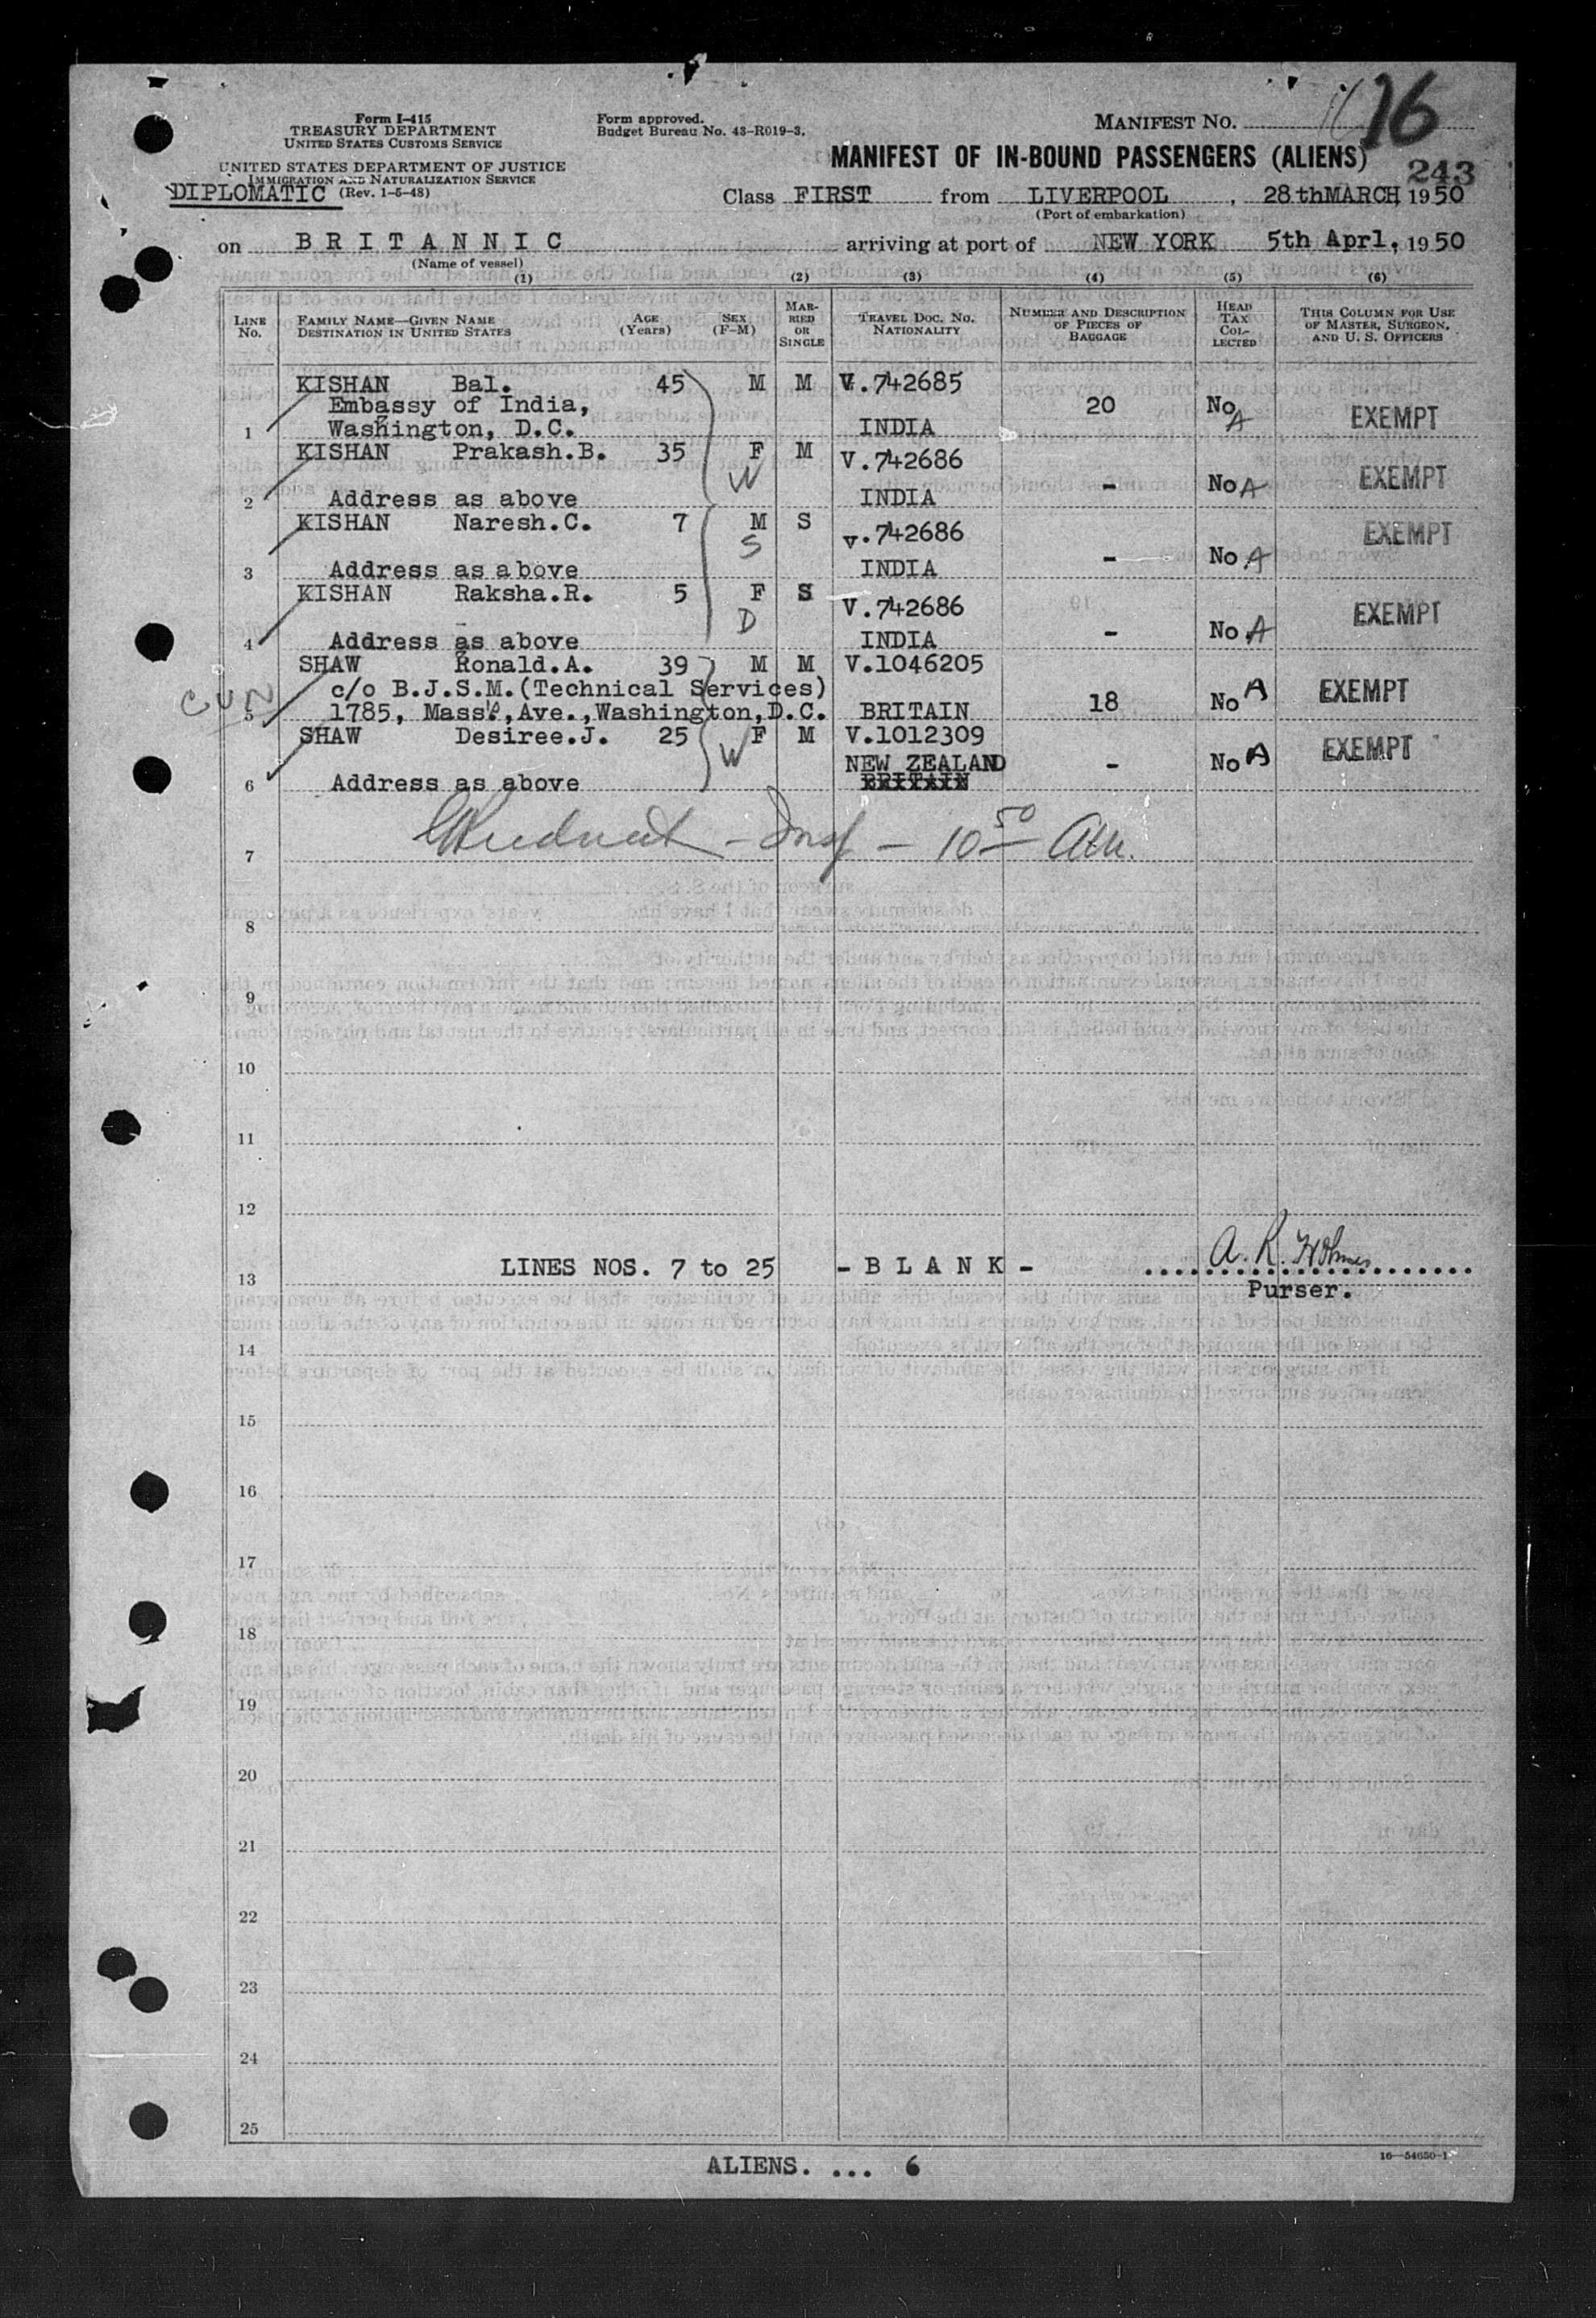 Form I-415
TREASURY DEPARTMENT
UNITED STATES CUSTOMS SERVICE
UNITED STATES DEPARTMENT OF JUSTICE
IMMIGRATION AND NATURALIZATION SERVICE
(Rev. 1-5-48)
DIPLOMATIC
Form approved.
Budget Bureau No. 43-R019-3.
MANIFEST NO. 16
MANIFEST OF IN-BOUND PASSENGERS (ALIENS)
243
Class FIRST from LIVERPOOL, 28thMARCH, 1950
(Port of embarkation)
on BRITANNIC arriving at port of NEW YORK 5th Aprl, 1950
(Name of vessel)
(1) (2) (3) (4) (5) (6)
LINE NO. FAMILY NAME—GIVEN NAME DESTINATION IN UNITED STATES AGE (Years) SEX (F-M) MARRIED OR SINGLE TRAVEL DOC. NO. NATIONALITY NUMBER AND DESCRIPTION OF PIECES OF BAGGAGE HEAD TAX COLLECTED THIS COLUMN FOR USE OF MASTER, SURGEON, AND U. S. OFFICERS
KISHAN Bal. 45 M M V.742685
Embassy of India, 20 No A EXEMPT
1 Washington, D.C. INDIA
KISHAN Prakash.B. 35 F M V.742686
W
2 Address as above INDIA - No A EXEMPT
KISHAN Naresh.C. 7 M S V.742686
S
3 Address as above INDIA - No A EXEMPT
KISHAN Raksha.R. 5 F S V.742686
D
4 Address as above INDIA - No A EXEMPT
SHAW Ronald.A. 39 M M V.1046205
c/o B.J.S.M.(Technical Services) 18 No A EXEMPT
5 1785, Mass'.,Ave.,Washington,D.C. BRITAIN
SHAW Desiree.J. 25 F M V.1012309
W NEW ZEALAND - No A EXEMPT
6 Address as above BRITAIN
7 Insp — 10 50 AM.
8
9
10
11
12
13 LINES NOS. 7 to 25 -BLANK- A. R. Holmes
Purser.
14
15
16
17
18
19
20
21
22
23
24
25
ALIENS. ... 6
16—54650-1